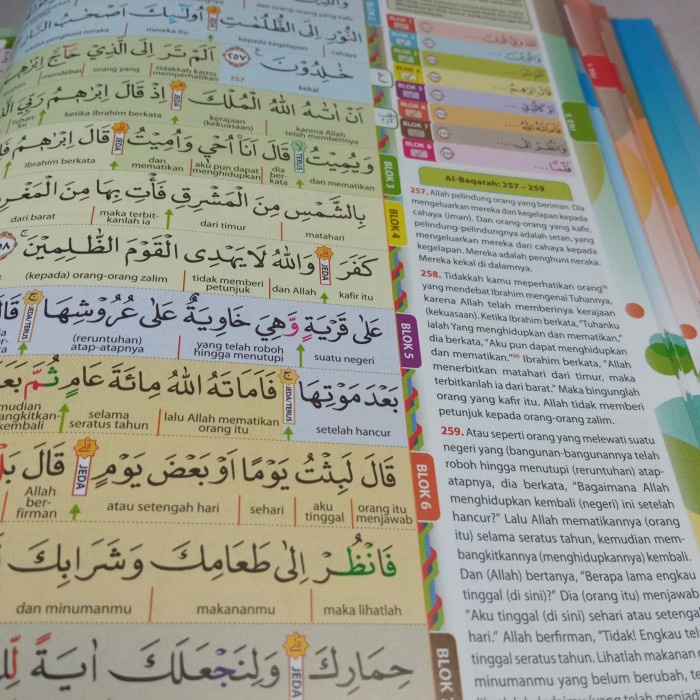 النُّوْرِ اِلَى الظُّلُمٰتِۗ اُولٰۤىِٕكَ اَصْحٰبُ
penghuni neraka
mereka itu
kepada kegelapan
cahaya
خٰلِدُوْنَ ࣖ ٢٥٧ اَلَمْ تَرَ اِلَى الَّذِيْ حَاۤجَّ
mendebat
orang yang
tidakkah kamu memperhatikan
257
kekal
اَنْ اٰتٰىهُ اللّٰهُ الْمُلْكَ اِذْ قَالَ اِبْرٰهٖمُ رَبِّيَ
ketika Ibrahim berkata
kerajaan (kekuasaan)
karena Allah telah memberinya
وَيُمِيْتُۙ قَالَ اَنَا۠ اُحْيٖ وَاُمِيْتُۗ قَالَ اِبْرٰهٖمُ
Ibrahim berkata
dan mematikan
aku pun dapat menghidupkan
dia berkata
dan mematikan
بِالشَّمْسِ مِنَ الْمَشْرِقِ فَأْتِ بِهَا مِنَ الْمَغْرِبِ
dari barat
maka terbitkanlah ia
dari timur
matahari
كَفَرَۗ وَاللّٰهُ لَا يَهْدِى الْقَوْمَ الظّٰلِمِيْنَۚ
(kepada) orang-orang zalim
tidak memberi petunjuk
dan Allah
kafir itu
عَلٰى قَرْيَةٍ وَّهِيَ خَاوِيَةٌ عَلٰى عُرُوْشِهَاۚ
(reruntuhan) atap-atapnya
yang telah roboh hingga menutupi
suatu negeri
بَعْدَ مَوْتِهَاۚ فَاَمَاتَهُ اللّٰهُ مِائَةَ عَامٍ ثُمَّ
selama seratus tahun
lalu Allah mematikan orang itu
setelah hancur
قَالَ لَبِثْتُ يَوْمًا اَوْ بَعْضَ يَوْمٍۗ قَالَ
Allah berfirman
atau setengah hari
sehari
aku tinggal
orang itu menjawab
فَانْظُرْ اِلٰى طَعَامِكَ وَشَرَابِكَ
dan minumanmu
makananmu
maka lihatlah
حِمَارِكَۗ وَلِنَجْعَلَكَ اٰيَةً
BLOK 3
BLOK 4
BLOK 5
BLOK 6
BLOK
Al-Baqarah: 257 – 259
257. Allah pelindung orang yang beriman. Dia
mengeluarkan mereka dari kegelapan kepada
cahaya (iman). Dan orang-orang yang kafir,
pelindung-pelindungnya adalah setan, yang
mengeluarkan mereka dari cahaya kepada
kegelapan. Mereka adalah penghuni neraka.
Mereka kekal di dalamnya.
258. Tidakkah kamu meperhatikan orang
yang mendebat Ibrahim mengenai Tuhannya,
karena Allah telah memberinya kerajaan
(kekuasaan). Ketika Ibrahim berkata, "Tuhanku
ialah Yang menghidupkan dan mematikan,"
dia berkata, "Aku pun dapat menghidupkan
dan mematikan." Ibrahim berkata, "Allah
menerbitkan matahari dari timur, maka
terbitkanlah ia dari barat." Maka bingunglah
orang yang kafir itu. Allah tidak memberi
petunjuk kepada orang-orang zalim.
259. Atau seperti orang yang melewati suatu
negeri yang (bangunan-bangunannya telah
roboh hingga menutupi (reruntuhan) atap-
atapnya, dia berkata, "Bagaimana Allah
menghidupkan kembali (negeri) ini setelah
hancur?" Lalu Allah mematikannya (orang
itu) selama seratus tahun, kemudian mem-
bangkitkannya (menghidupkannya) kembali.
Dan (Allah) bertanya, "Berapa lama engkau
tinggal (di sini)?" Dia (orang itu) menjawab
"Aku tinggal (di sini) sehari atau setengah
hari." Allah berfirman, "Tidak! Engkau
tinggal seratus tahun. Lihatlah makanan
minumanmu yang belum berubah,